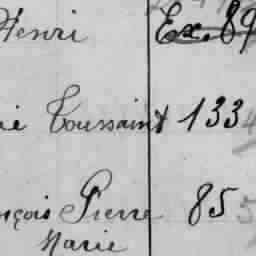 Henri Ex. 89
ie Toussaint 133
nçois Pierre 85
Marie